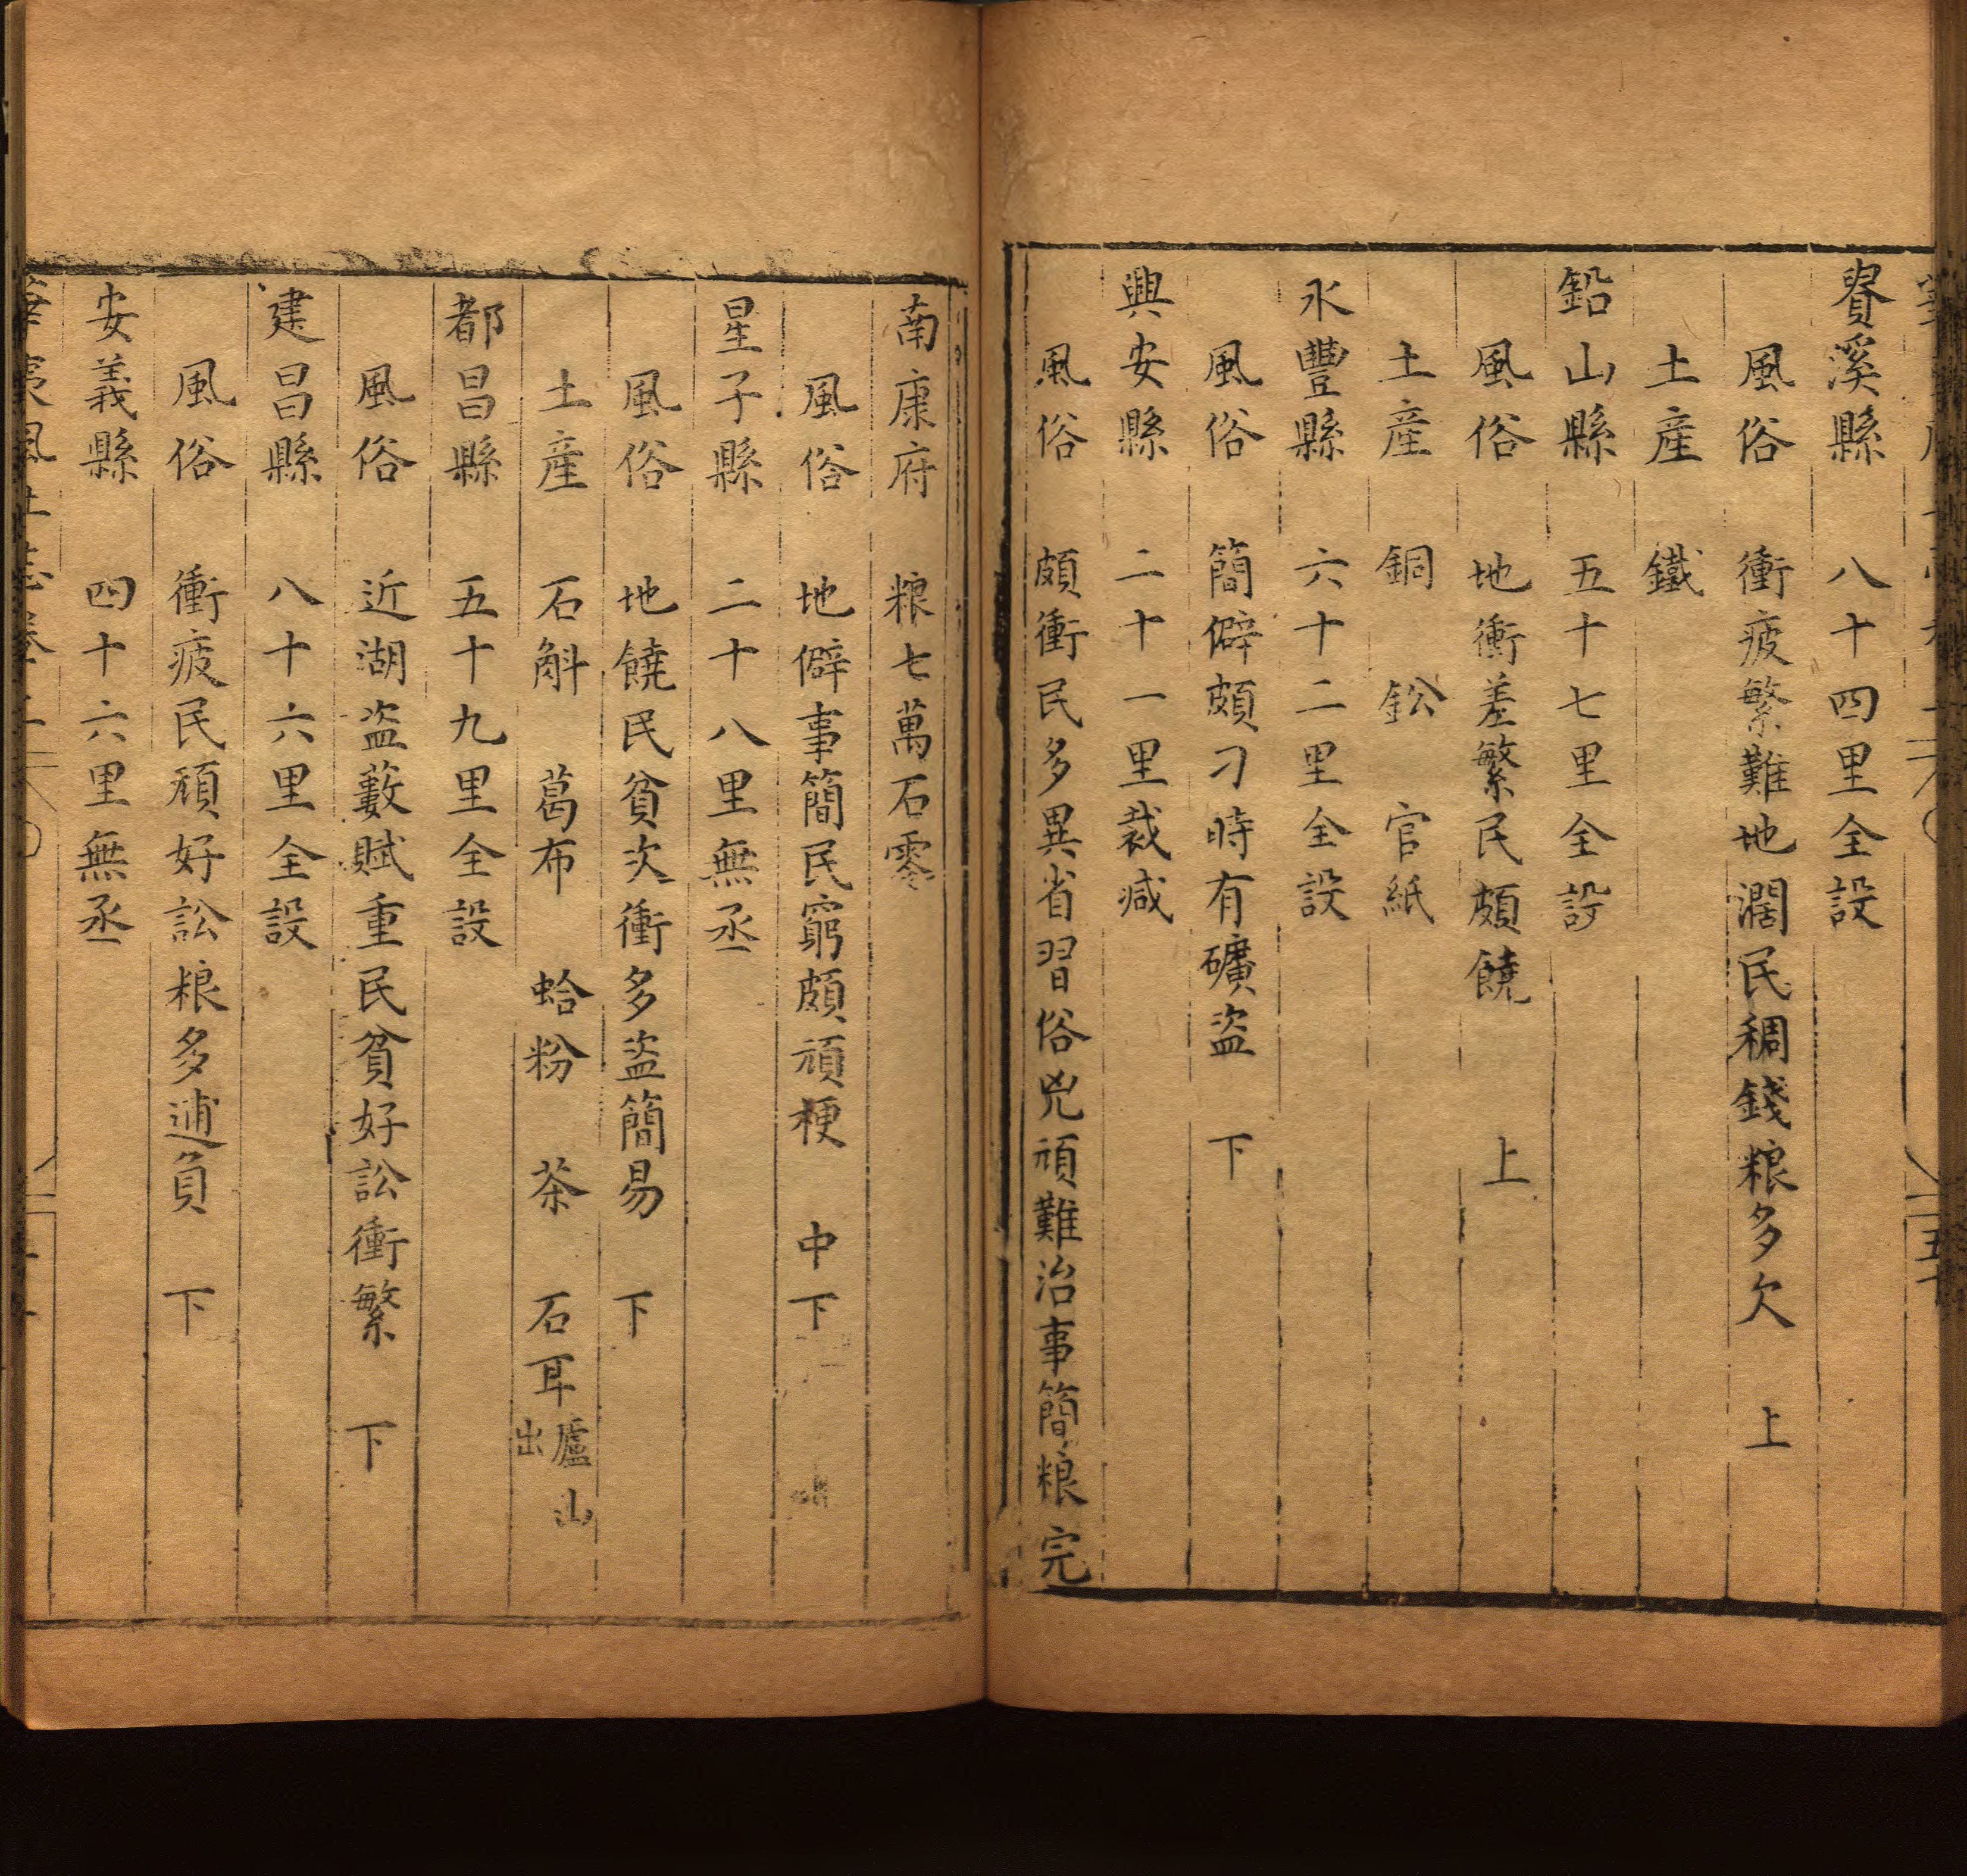 貴溪縣　八十四里全設
風俗　衝疲繁難地濶民稠錢粮多欠　上
土產　鐵
鉛山縣　五十七里全設
風俗　地衝差繁民頗饒　上
土產　銅　鈆　官紙
永豐縣　六十二里全設
風俗　簡僻頗刁時有礦盗　下
興安縣　二十一里裁减
風俗　頗衝民多異省習俗兇頑難治事簡粮完
南康府　粮七萬石零
風俗　地僻事簡民窮頗頑梗　中下
星子縣　二十八里無丞
風俗　地饒民貧次衝多盗簡易　下
土產　石斛　葛布　蛤粉　茶　石耳廬山出
都昌縣　五十九里全設
風俗　近湖盗藪賦重民貧好訟衝繁　下
建昌縣　八十六里全設
風俗　衝疲民頑好訟粮多逋負　下
安義縣　四十六里無丞